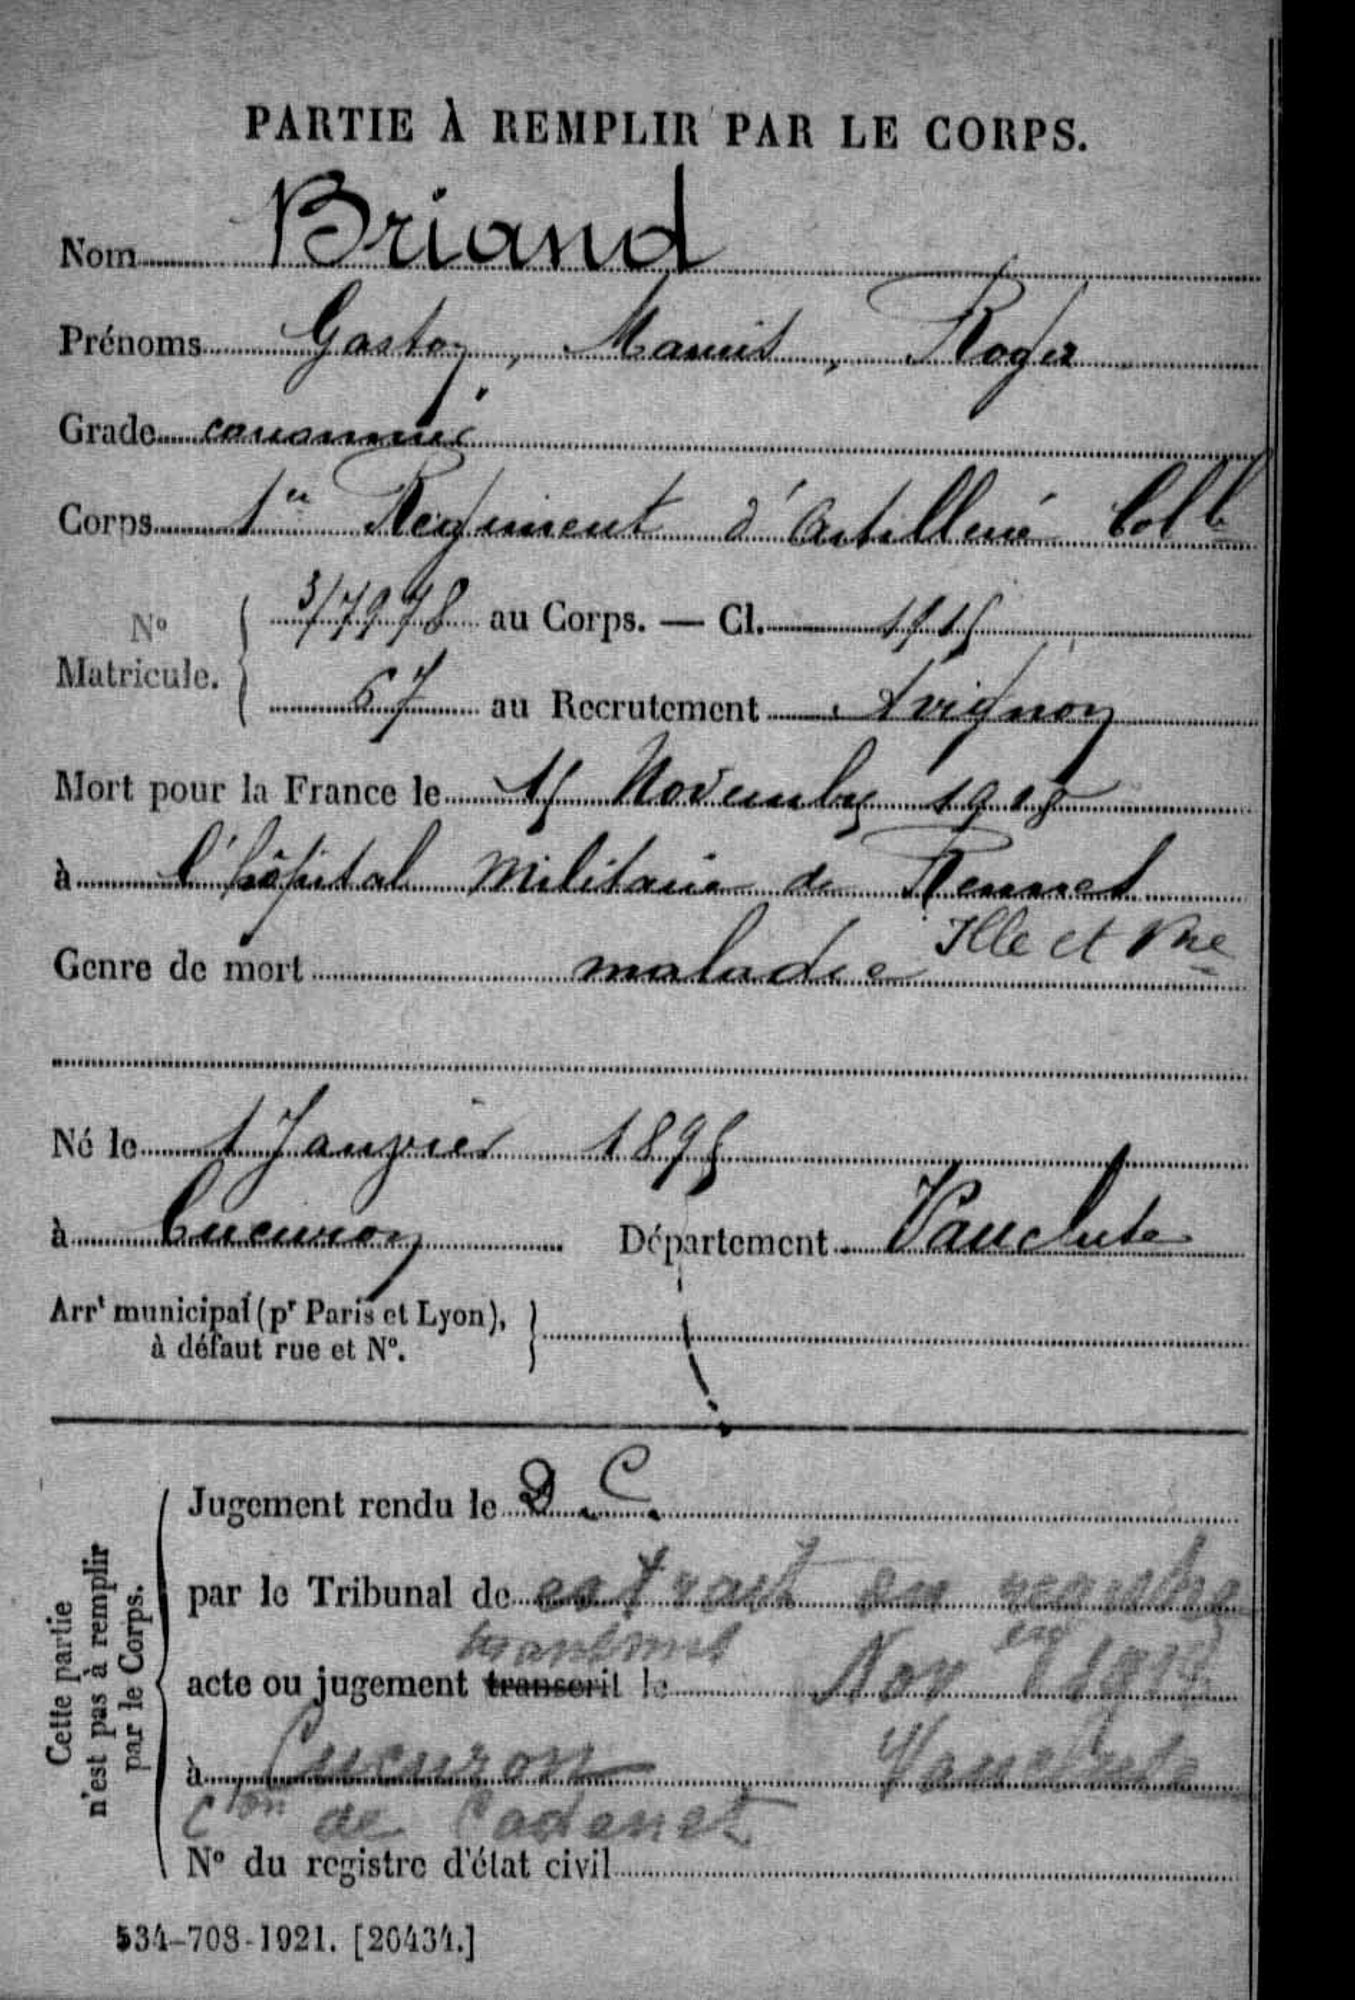 PARTIE À REMPLIR PAR LE CORPS.
Nom Briand
Prénoms Gaston, Marius, Roger
Grade canonnier
Corps 1er Régiment d'Artillerie Colle
No Matricule. { 3/7978 au Corps. — Cl. 1915
67 au Recrutement Avignon
Mort pour la France le 15 Novembre 1918
à l'hôpital Militaire de Rennes
Ille et Vne
Genre de mort maladie
Né le 1 Janvier 1895
à Cucuron Département Vaucluse
Arrt municipal (pr Paris et Lyon),
à défaut rue et No. }
Cette partie
n'est pas à remplir
par le Corps.
Jugement rendu le D. C.
par le Tribunal de extrait en
acte ou jugement transcrit le Nov
transmis en
à Cucuron Vaucluse
Cton de Cadenet
No du registre d'état civil
534-708-1921. [26434.]